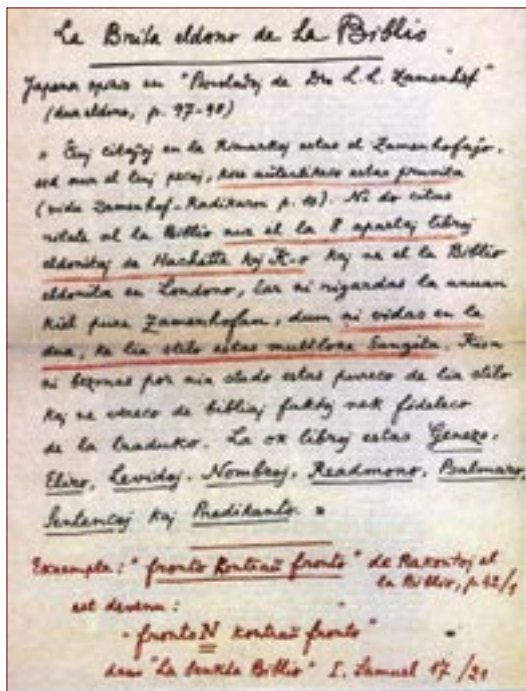 La Brita eldono de La Biblio
Japana opinio en "Paroladoj de Dro L. L. Zamenhof"
(dua eldono, p. 97-98)
" Ĉiuj citaĵoj en la Rimarkoj estas el Zamenhofaĵo,
sed nur el tiuj pecoj, kies aŭtentikeco estas pruvita
(vidu Zamenhof-Radikaron p. 10). Ni do citas
rilate al la Biblio nur el la 8 apartaj libroj
eldonitaj de Hachette kaj K-o kaj ne el la Biblio
eldonita en Londono, ĉar ni rigardas la unuan
kiel pure Zamenhofan, dum ni vidas en la
dua, ke lia stilo estas multloke ŝanĝita. Kion
ni bezonas por nia studo estas pureco de lia stilo
kaj ne vereco de bibliaj faktoj nek fideleco
de la traduko. La ok libroj estas Genezo,
Eliro, Levidoj, Nombroj, Readmono, Psalmaro,
Sentencoj kaj Predikanto. "
Exemple: "fronto kontraŭ fronto" de Rakontoj el
la Biblio, p. 42/1
est devenu:
"frontoN kontraŭ fronto"
dans "La Sankta Biblio" I. Samuel 17/21